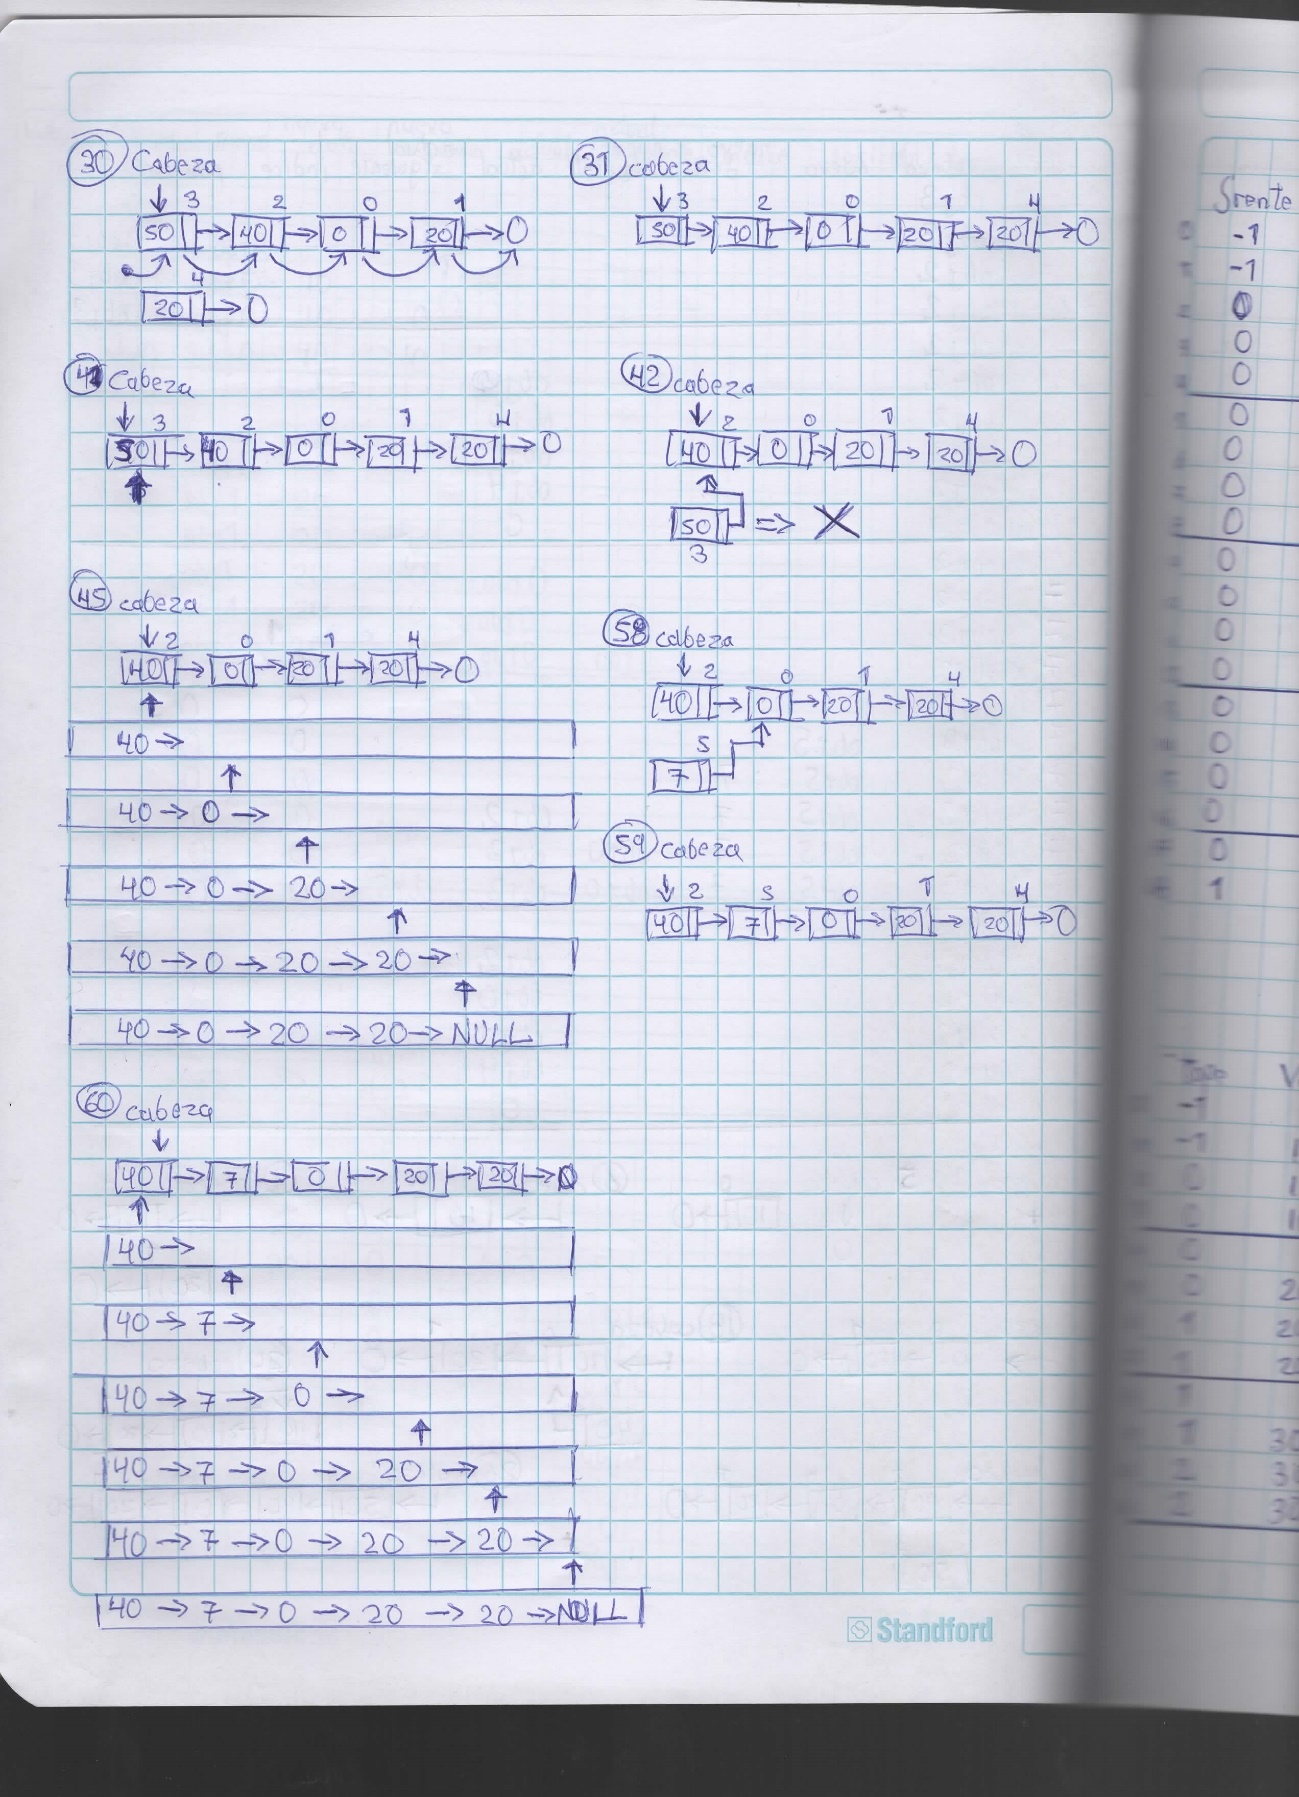 30 Cabeza
3 2 0 1
50 → 40 → 0 → 20 → 0
4
20 → 0
31 cabeza
3 2 0 1 4
50 → 40 → 0 → 20 → 20 → 0
41 Cabeza
3 2 0 1 4
50 → 40 → 0 → 20 → 20 → 0
42 cabeza
2 0 1 4
40 → 0 → 20 → 20 → 0
50 => X
3
45 cabeza
2 0 1 4
40 → 0 → 20 → 20 → 0
40 →
40 → 0 →
40 → 0 → 20 →
40 → 0 → 20 → 20 →
40 → 0 → 20 → 20 → NULL
58 cabeza
2 0 1 4
40 → 0 → 20 → 20 → 0
5
7
59 cabeza
2 5 0 1 4
40 → 7 → 0 → 20 → 20 → 0
60 cabeza
40 → 7 → 0 → 20 → 20 → 0
40 →
40 → 7 →
40 → 7 → 0 →
40 → 7 → 0 → 20 →
40 → 7 → 0 → 20 → 20 →
40 → 7 → 0 → 20 → 20 → NULL
Standford
Srente
-1
-1
0
0
0
0
0
0
0
0
0
0
0
0
0
0
0
0
1
-1
-1